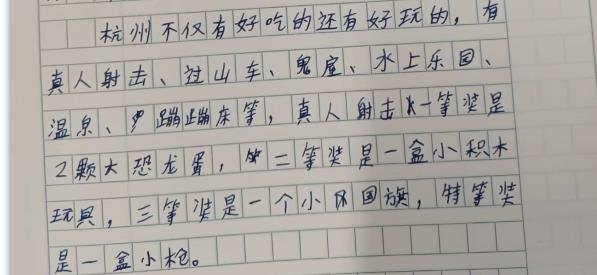 杭州不仅有好吃的还有好玩的，有
真人射击、过山车、鬼屋、水上乐园、
温泉、蹦蹦床等，真人射击一等奖是
2颗大恐龙蛋，二等奖是一盒小积木
玩具，三等奖是一个小国旗，特等奖
是一盒小枪。